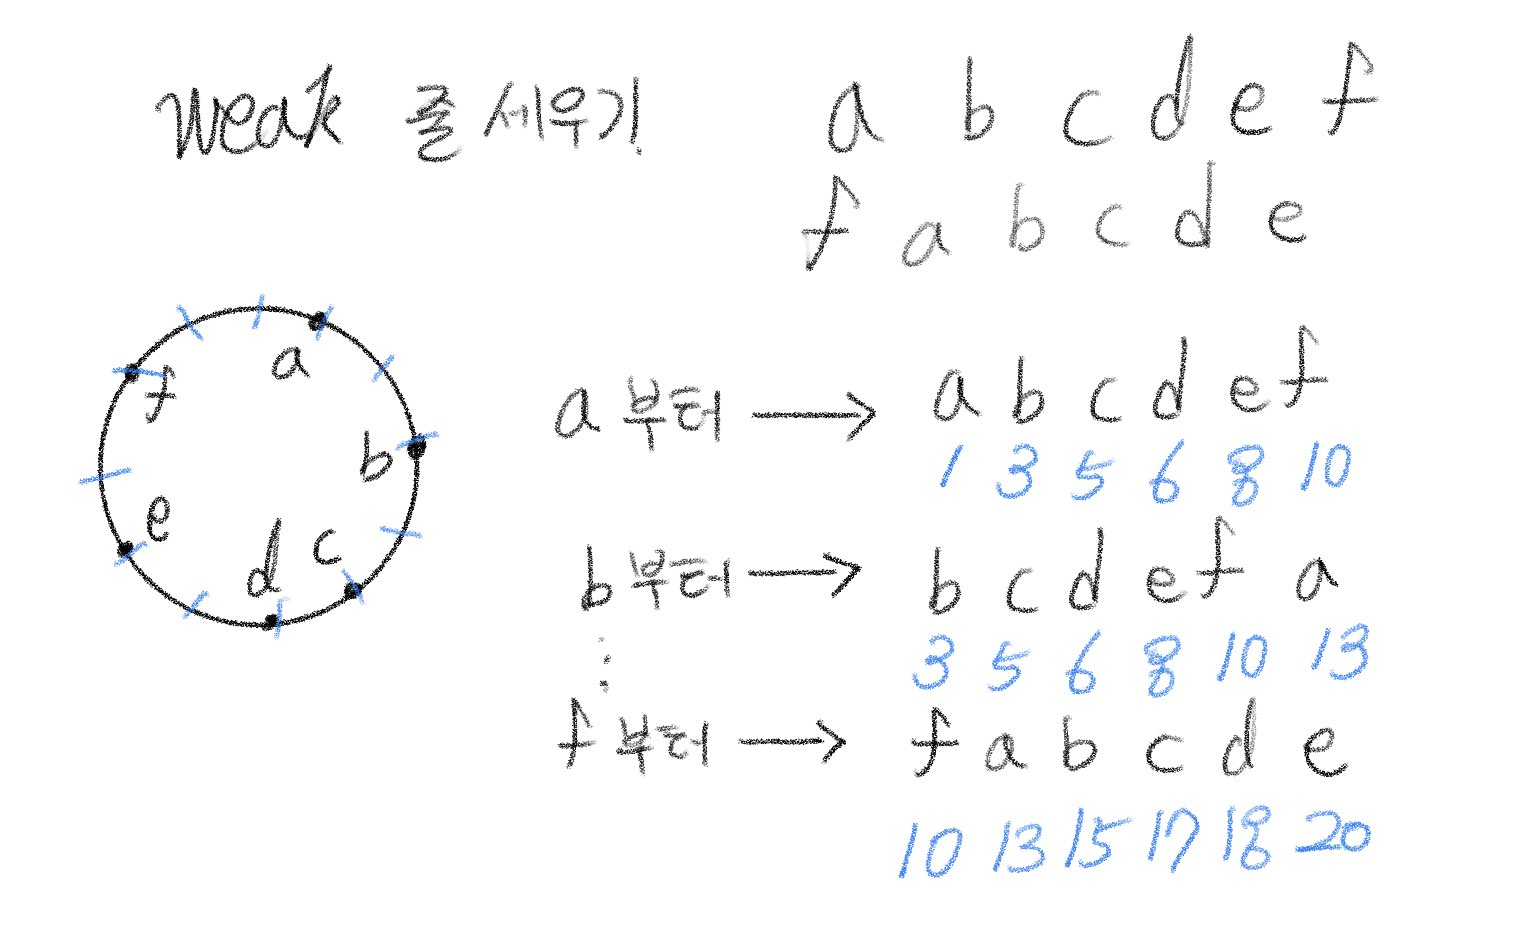 weak 줄 세우기
a b c d e f
f a b c d e
a
b
c
d
e
f
a 부터 → a b c d e f
1 3 5 6 8 10
b 부터 → b c d e f a
3 5 6 8 10 13
⋮
f 부터 → f a b c d e
10 13 15 17 18 20